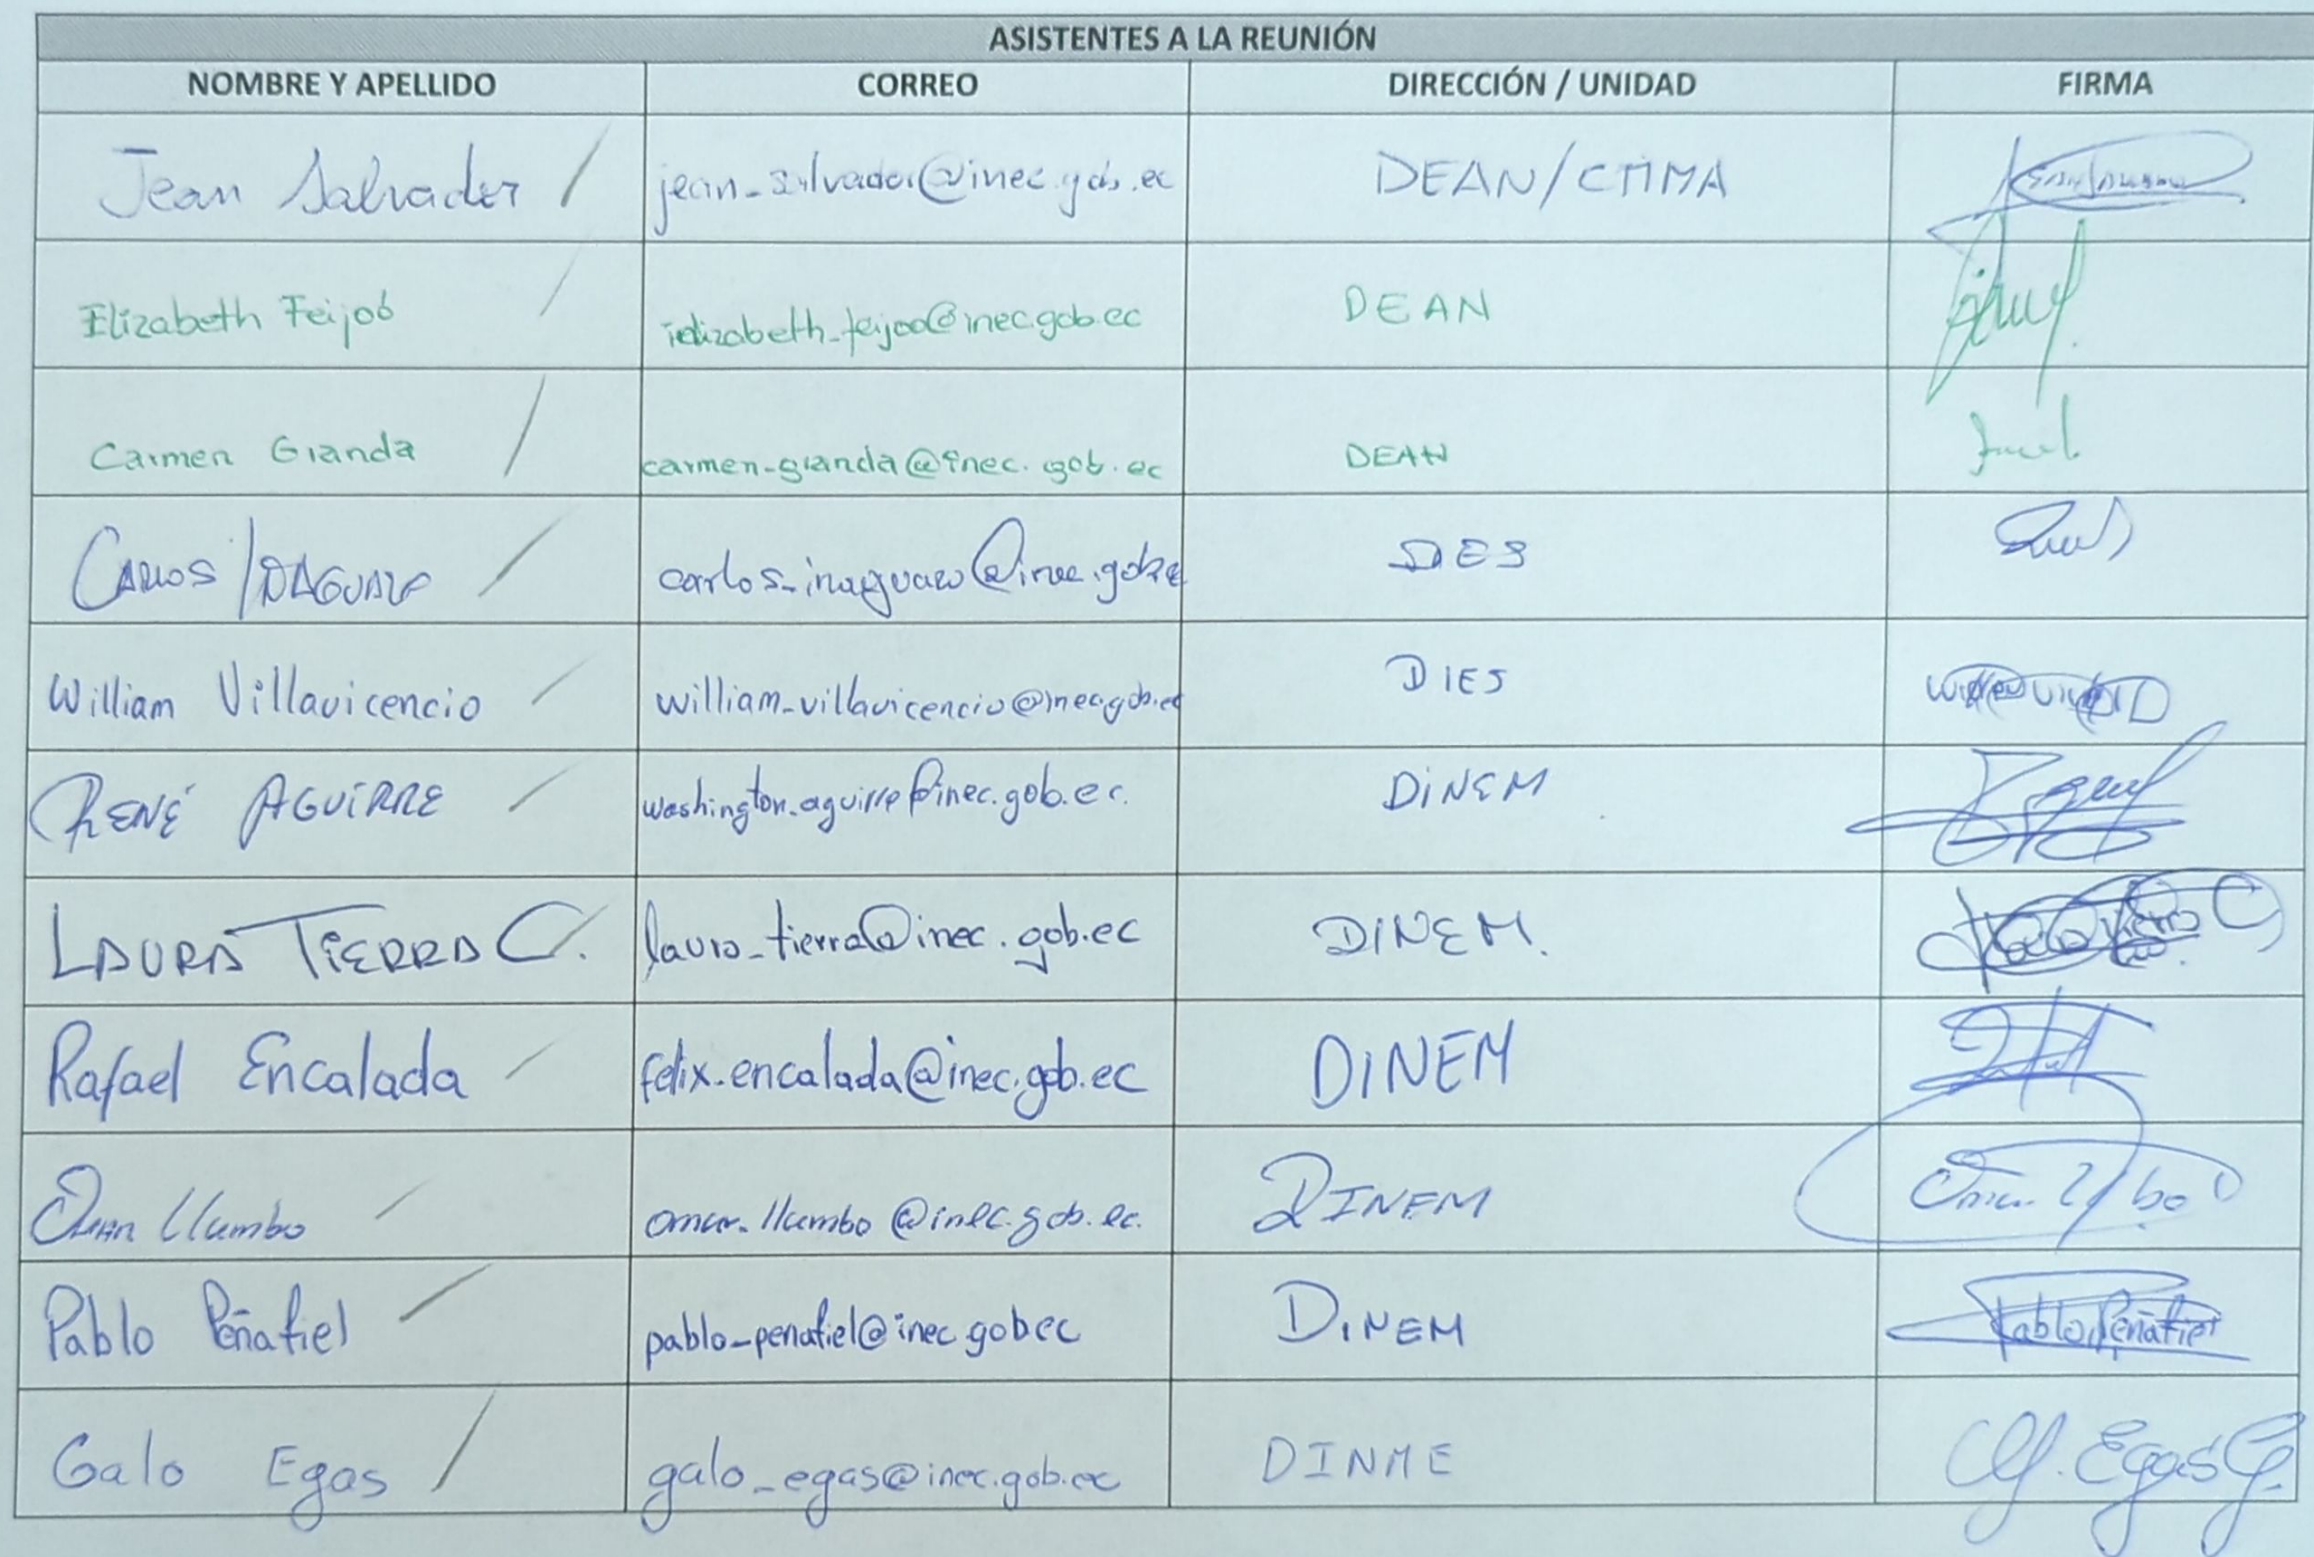 ASISTENTES A LA REUNIÓN
NOMBRE Y APELLIDO CORREO DIRECCIÓN / UNIDAD FIRMA
Jean Salvador / jean_salvador@inec.gob.ec DEAN/CTIMA
Elizabeth Feijoó / ielizabeth_feijoo@inec.gob.ec DEAN
Carmen Granda / carmen_granda@inec.gob.ec DEAN
CARLOS INAGUAZO / carlos_inaguazo@inec.gob.ec DES
William Villavicencio / william_villavicencio@inec.gob.ec DIES
RENÉ AGUIRRE / washington_aguirre@inec.gob.ec. DINEM
LAURA TIERRA C. / laura_tierra@inec.gob.ec DINEM.
Rafael Encalada / felix_encalada@inec.gob.ec DINEM
OMAR Llumbo / omar_llumbo@inec.gob.ec. DINEM
Pablo Peñafiel / pablo_penafiel@inec.gob.ec DINEM Pablo Peñafiel
Galo Egas / galo_egas@inec.gob.ec DINME Egas G.